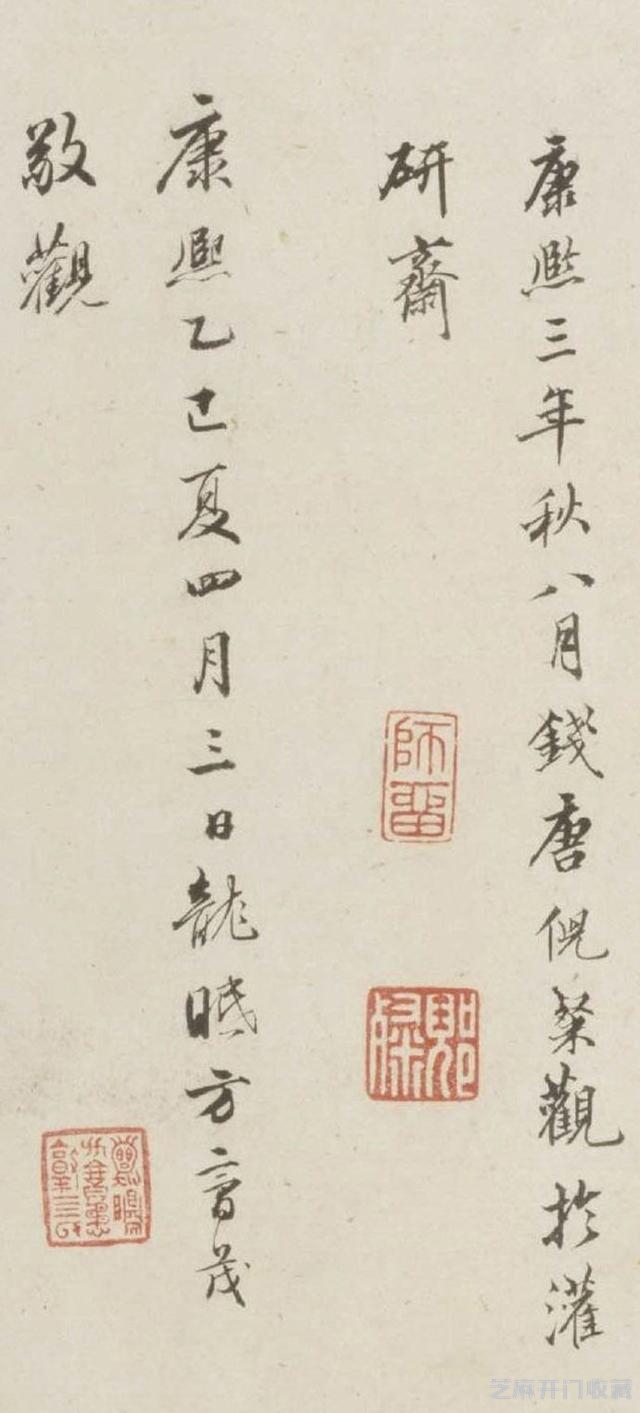 康熙三年秋八月錢唐倪粲觀於灌
研齋
師留
康熙乙巳夏四月三日龍眠方亨咸
敬觀
芝麻开门收藏